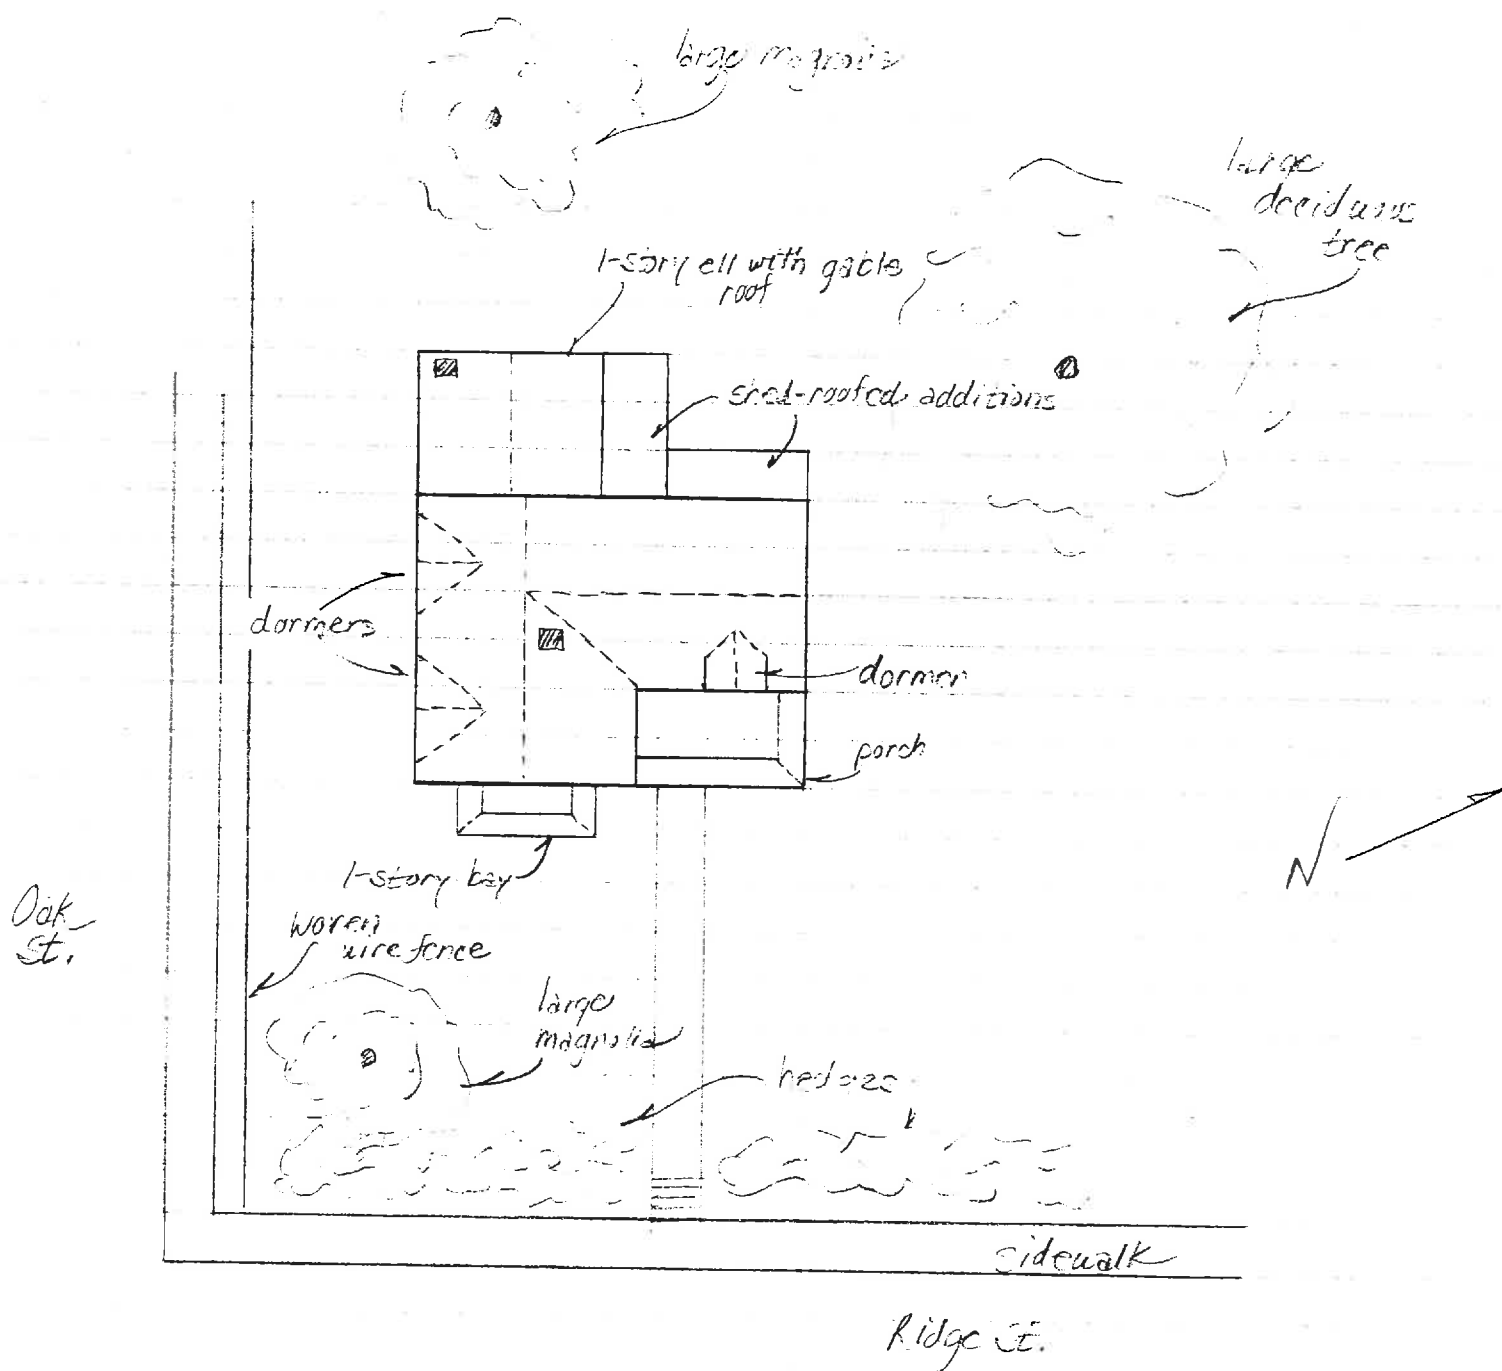 large magnolia
large
deciduous
tree
1-story ell with gable
roof
shed-roofed additions
dormers
dormer
porch
1-story bay
N
Oak
St.
woven
wire fence
large
magnolia
hedges
sidewalk
Ridge St.